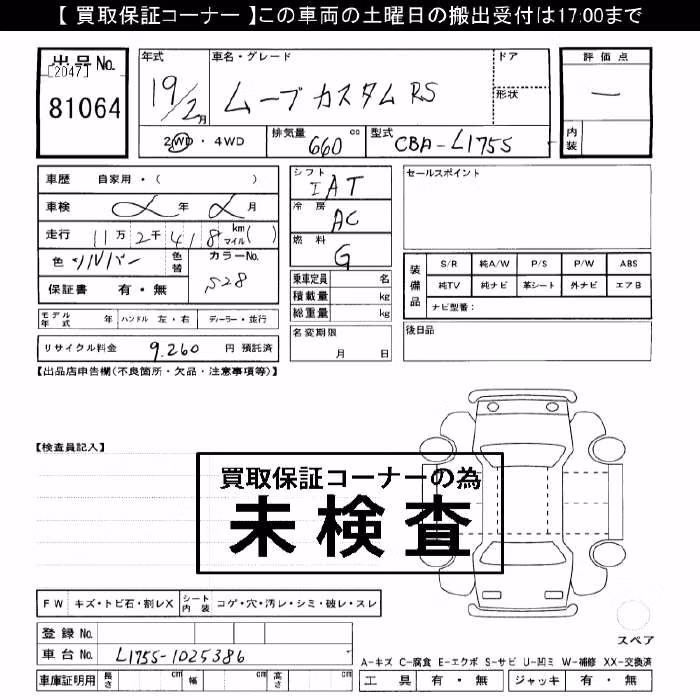 【 買取保証コーナー 】この車両の土曜日の搬出受付は17:00まで
出品No.
[2047]
81064
年式
19/2月
車名・グレード
ムーブカスタム RS
ドア
形状
評価点
一
内装
2WD・4WD
排気量 660 cc
型式 CBA-L175S
車歴 自家用・( )
車検 年 月
走行 11万2千418 km マイル( )
色 シルバー 色替
カラーNo. S28
保証書 有・無
シフト IAT
冷房 AC
燃料 G
乗車定員 名
積載量 kg
総重量 kg
名変期限
月 日
セールスポイント
装備品
S/R 純A/W P/S P/W ABS
純TV 純ナビ 革シート 外ナビ エアB
ナビ型番：
後日品
モデル年式 年 ハンドル 左・右 ディーラー・並行
リサイクル料金 9.260 円 預託済
【出品店申告欄(不良箇所・欠品・注意事項等)】
【検査員記入】
買取保証コーナーの為
未検査
FW キズ・トビ石・割レX
シート内装 コゲ・穴・汚レ・シミ・破レ・スレ
登録No.
車台No. L175S-1025386
車庫証明用 長さ cm 幅 cm 高さ cm
スペア
A-キズ C-腐食 E-エクボ S-サビ U-凹ミ W-補修 XX-交換済
工具 有・無 ジャッキ 有・無